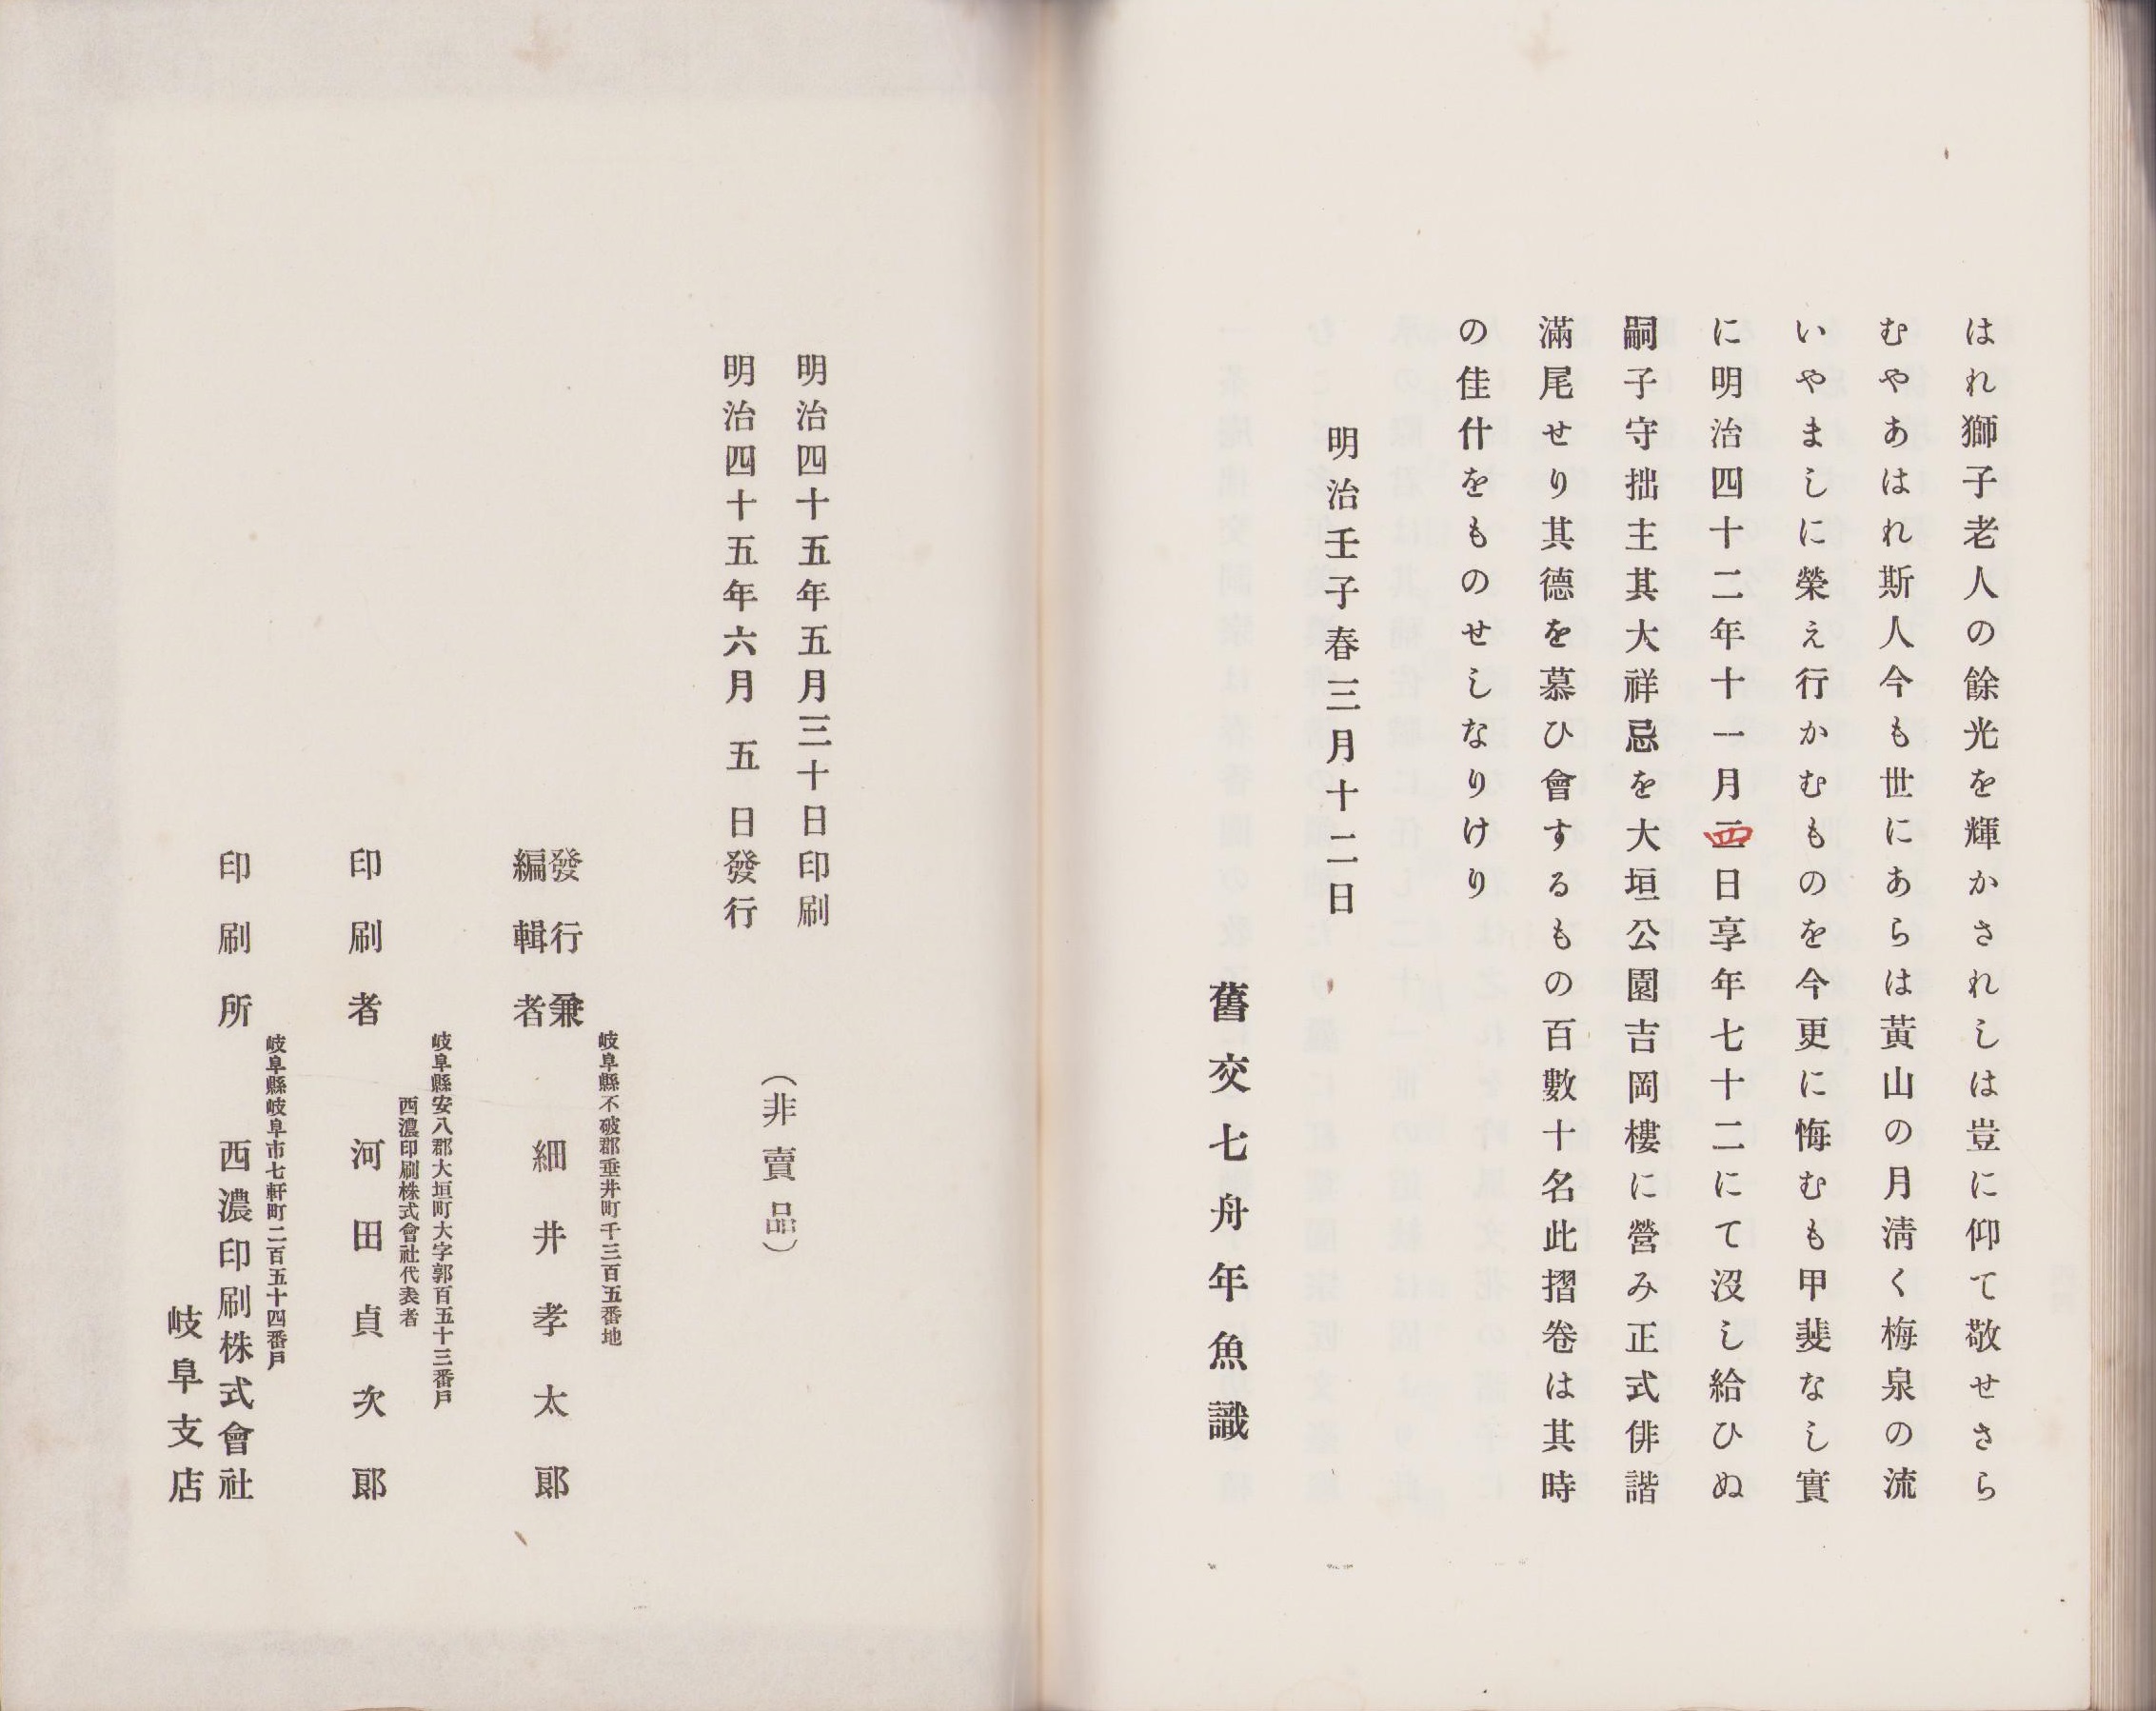 はれ獅子老人の餘光を輝かされしは豈に仰て敬せさら
むやあはれ斯人今も世にあらは黃山の月淸く梅泉の流
いやましに榮え行かむものを今更に悔むも甲斐なし實
に明治四十二年十一月四日享年七十二にて沒し給ひぬ
嗣子守拙主其大祥忌を大垣公園吉岡樓に營み正式俳諧
滿尾せり其德を慕ひ會するもの百數十名此摺卷は其時
の佳什をものせしなりけり
明治壬子春三月十二日
舊交七舟年魚識
明治四十五年五月三十日印刷
明治四十五年六月五日發行
（非賣品）
岐阜縣不破郡垂井町千三百五番地
發行兼
編輯者
細井孝太郞
岐阜縣安八郡大垣町大字郭百五十三番戶
西濃印刷株式會社代表者
印刷者
河田貞次郞
岐阜縣岐阜市七軒町二百五十四番戶
印刷所
西濃印刷株式會社
岐阜支店